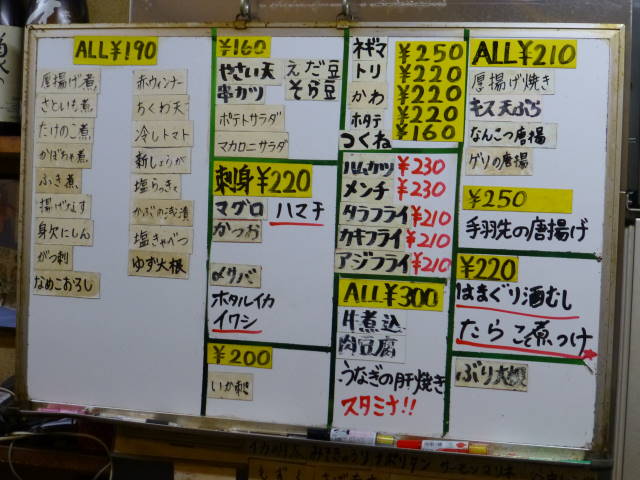 ALL¥190
厚揚げ煮
さといも煮
たけのこ煮
かぼちゃ煮
ふき煮
揚げなす
身欠にしん
がつ刺
なめこおろし
赤ウィンナー
ちくわ天
冷しトマト
新しょうが
塩らっきょ
かぶの浅漬
塩きゃべつ
ゆず大根
¥160
やさい天
えだ豆
串カツ
そら豆
ポテトサラダ
マカロニサラダ
刺身¥220
マグロ
ハマチ
かつお
〆サバ
ホタルイカ
イワシ
¥200
いか刺
ネギマ ¥250
トリ ¥220
かわ ¥220
ホタテ ¥220
つくね ¥160
ハムカツ ¥230
メンチ ¥230
タラフライ ¥210
カキフライ ¥210
アジフライ ¥210
ALL¥300
牛煮込
肉豆腐
うなぎの肝焼き
スタミナ!!
ALL¥210
厚揚げ焼き
キス天ぷら
なんこつ唐揚
ゲソの唐揚
¥250
手羽先の唐揚げ
¥220
はまぐり酒むし
たらこ煮つけ
ぶり大根